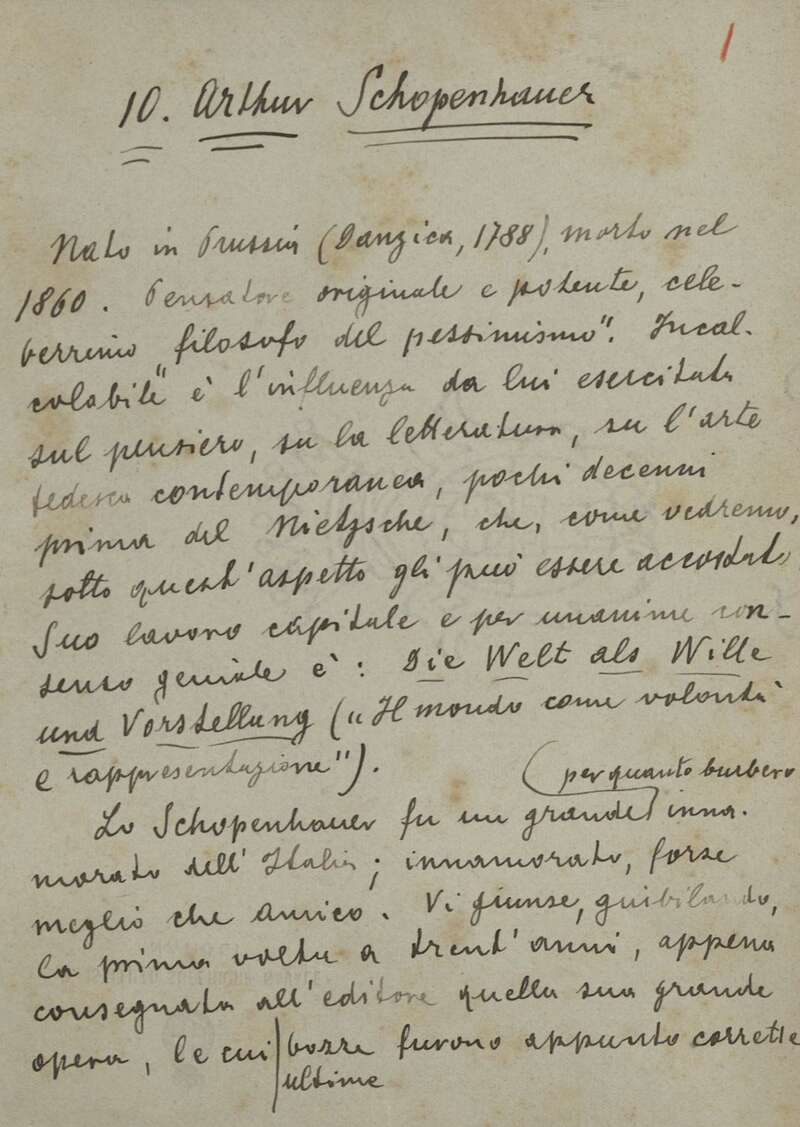 1
10. Arthur Schopenhauer
Nato in Prussia (Danzica, 1788), morto nel
1860. Pensatore originale e potente, cele-
berrimo "filosofo del pessimismo". Incal-
colabile è l'influenza da lui esercitata
sul pensiero, su la letteratura, su l'arte
tedesca contemporanea, pochi decenni
prima del Nietzsche, che, come vedremo,
sotto quest'aspetto gli può essere accostato.
Suo lavoro capitale e per unanime con-
senso geniale è: Die Welt als Wille
und Vorstellung ("Il mondo come volontà
e rappresentazione").
(per quanto burbero
Lo Schopenhauer fu un grande inna-
morato dell'Italia; innamorato, forse
meglio che amico. Vi giunse, guibilando,
la prima volta a trent'anni, appena
consegnata all'editore quella sua grande
opera, le cui bozze furono appunto corrette
ultime